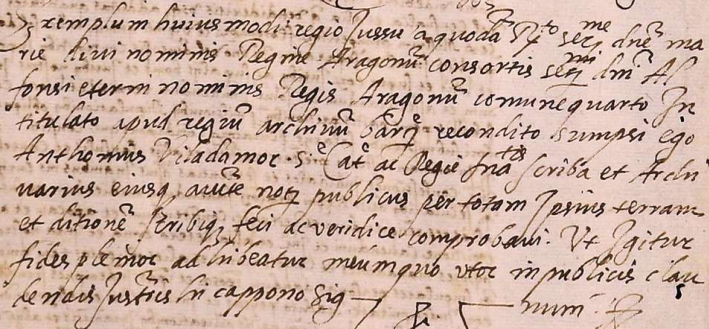 Exemplum huiusmodi regio Jussu a quodã R.to sere.me dñe ma
rie divi nominis Regine Aragonũ consortis sere.mi dm̃ Al
fonsi eterni nominis Regis Aragonũ comune quarto In
titulato apud regiũ archivũ barq̃ recondito Sumpsi ego
Anthonius Viladamor S. Cat.e ac Regie scriba et Archi
varius eiusq auc.te not. publicus per totam Ipsius terram
et ditionẽ scribiq feci ac veridice comprobavi. Ut Igitur
fides plenior adhibeatur meum quo utor in publicis clau
dendis Justr̃is hic appono Sig — num.